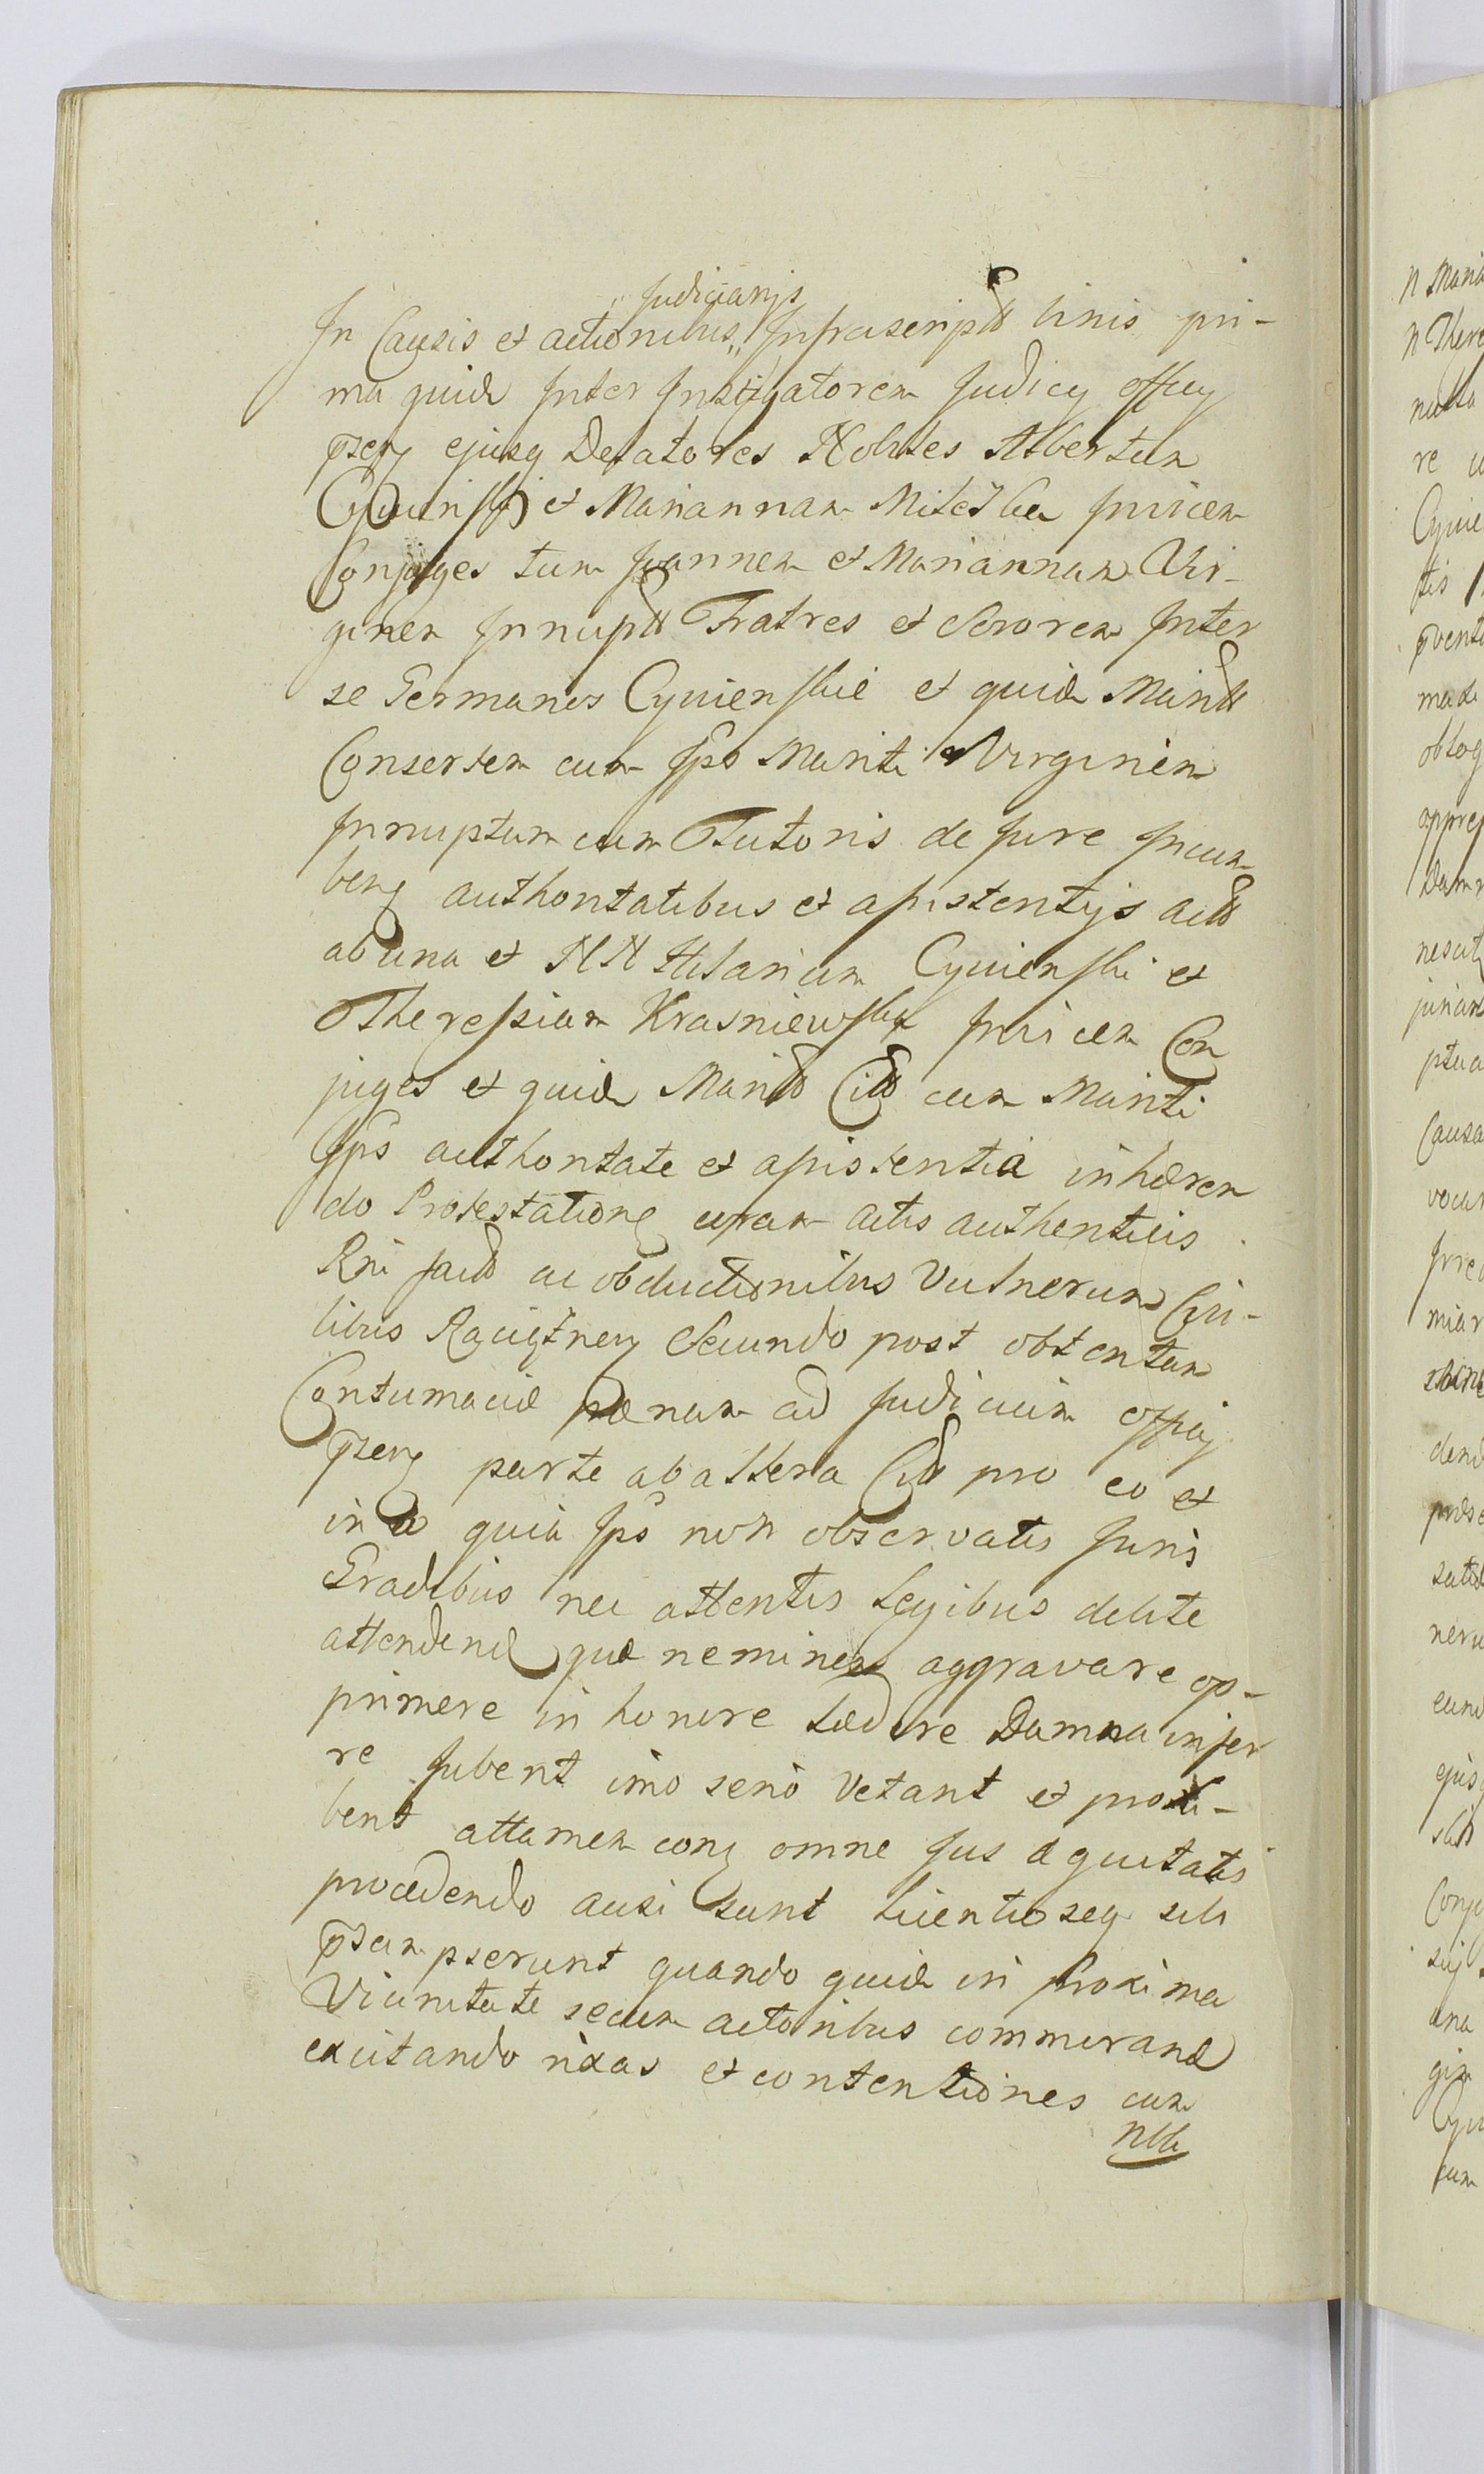 Judiciarijs
In Causis et actionibus Infrascript binis pri-
ma quid Inter Instigatorem Judicij Officij
ejusq Delatores Nobiles Albertum
et Mariannam invicem
Conjuges tum Joannem et Mariannam Vir-
ginem Innupt Fratres et Sororem Inter
se Germanos Cywienskie et quid Marit
Consortem cum Ipso Mariti Virginem
Innuptam cum Tutoris de Jure Incum
ben authoritatibus et assistentijs act
ab una et NN Hilarium Cywienski et
Theressiam Krasniewska Invicem Con
juges et quid Marit Citt cum Mariti
Ips authoritate et assistentia inhæren
do Protestatione coram actis authenticis
Rni fact ac obductionibus Vulnerum Civi-
libus Secundo post obtentam
Contumaciæ pænam ad Judicium Officij
parte ab altera Citt pro eo et
in eo quia Ips non observatis Juris
Gradibus nec attentis Legibus debite
attendend quæ neminem aggravare op-
primere in honore lædere Damna infer
re Jubent imo serio Vetant et prohi-
bent attamen con omne Jus æquitatis
procedendo ausi sunt Licentioseq sibi
præsumpserunt quando quid in Proxima
Vicinitate secum actoribus commorand
excitando rixas et contentiones cum
Nbb

n Maria
n There
nulla
re
Cywie
tis
made
oblog
appre
Damn
juriar
ptua
Causa
vocar
miar
dend
præs
neru
eund
ejus
Conju
una
gin
cum